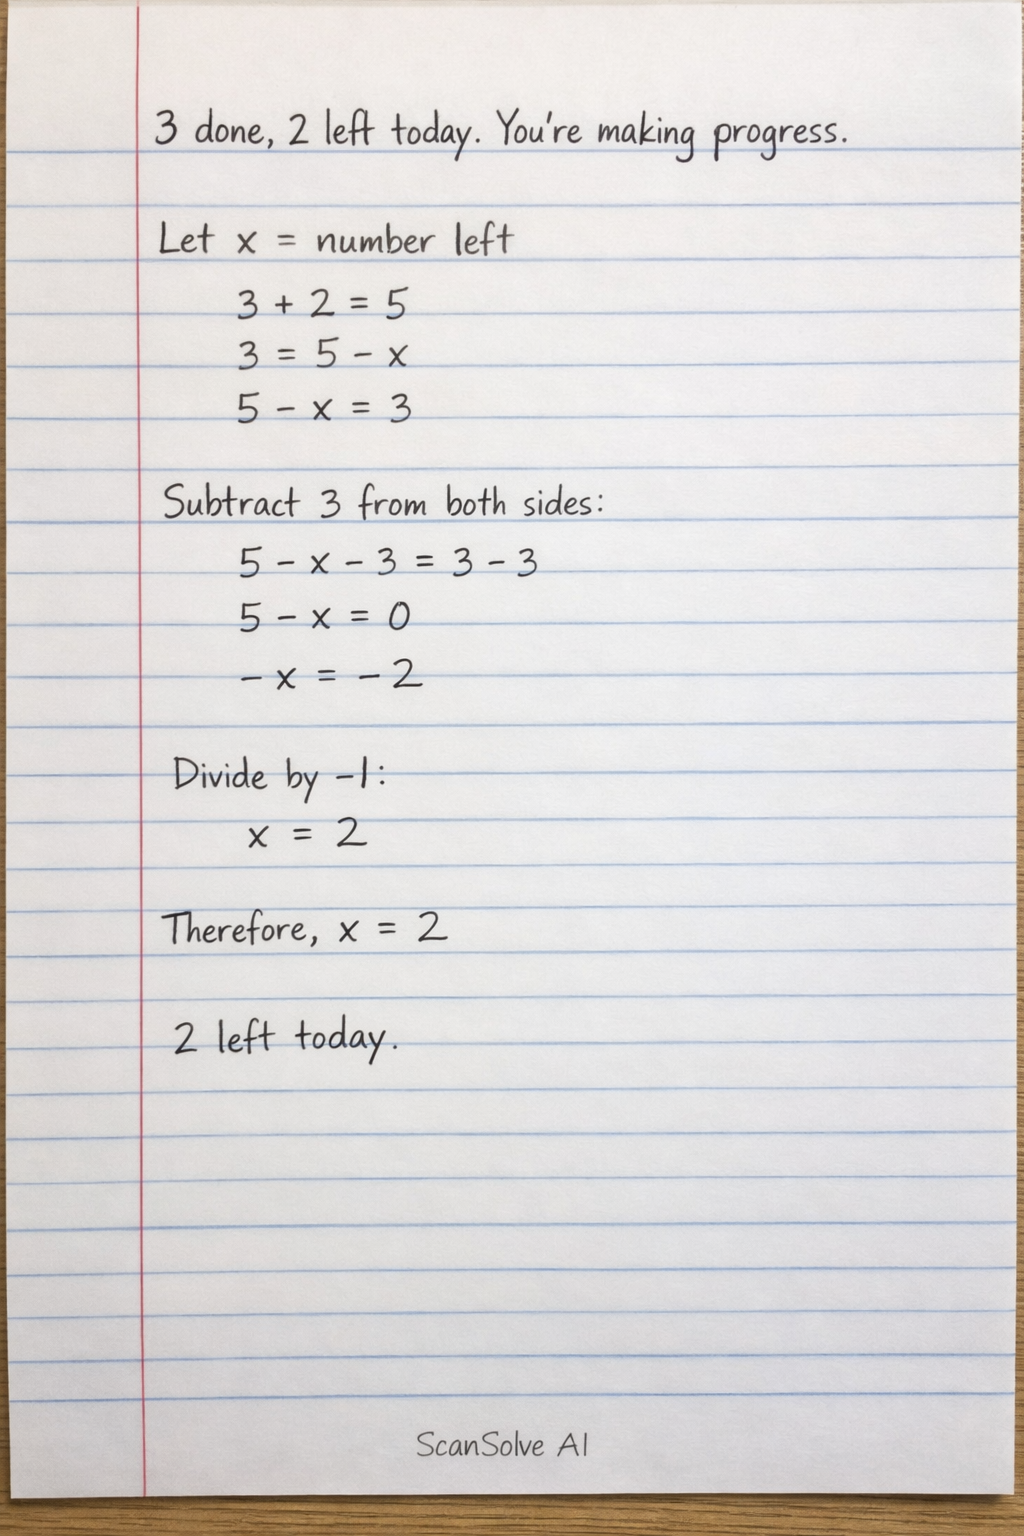 3 done, 2 left today. You're making progress.
Let x = number left
3 + 2 = 5
3 = 5 - x
5 - x = 3
Subtract 3 from both sides:
5 - x - 3 = 3 - 3
5 - x = 0
- x = - 2
Divide by -1:
x = 2
Therefore, x = 2
2 left today.
ScanSolve AI